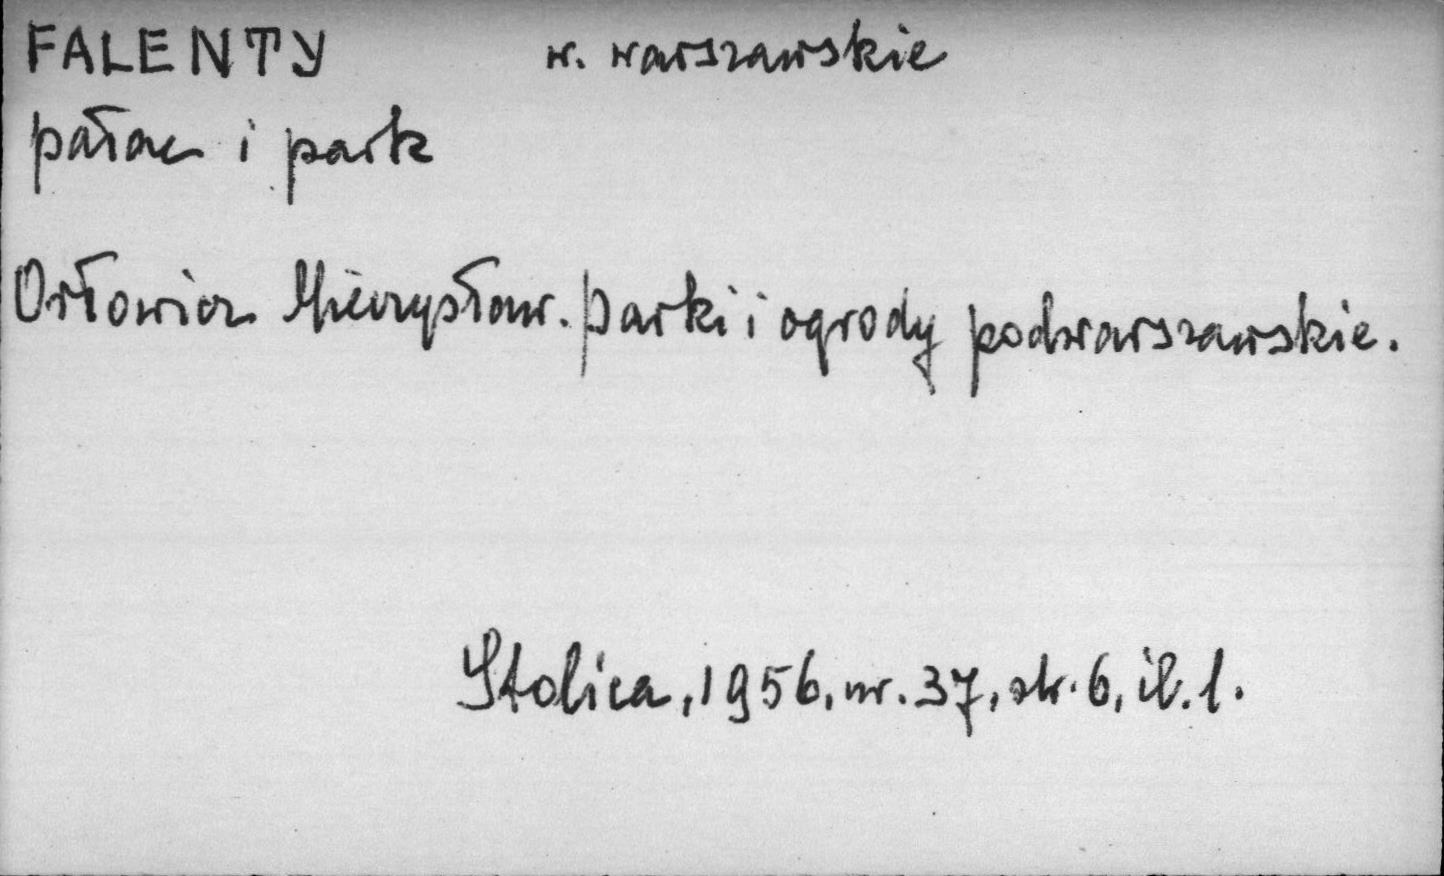 FALENTY w. warszawskie
pałac i park
Orłowicz Mieczysław. Parki i ogrody podwarszawskie.
Stolica, 1956, nr. 37, str. 6, il. 1.